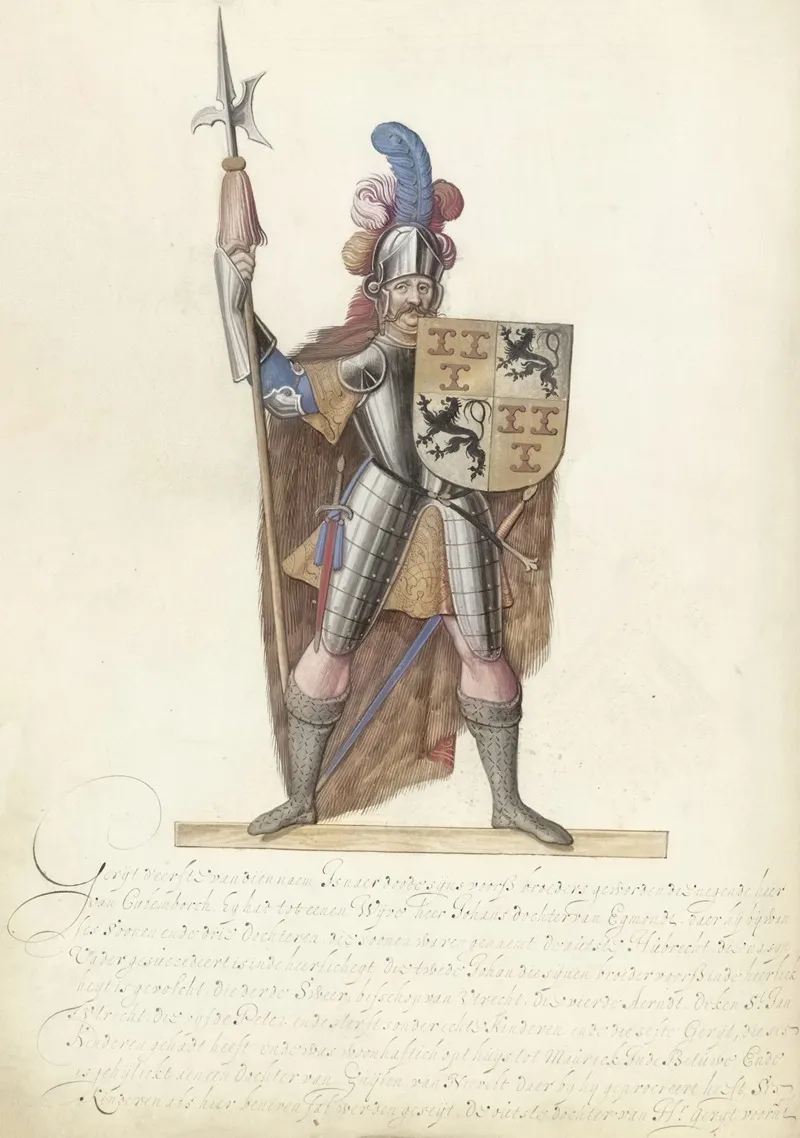 Gerijt d'eerste van dien naem Is naer doode sijns voorß broeders geworden die negende heer
van Culemborch. hij had tot eenen Wijve heer Johans dochter van Egmondt, daer hij bij wan
ses soonen ende drie dochteren die soonen waren genaemt de outste Hubrecht die na sijn
Vader gesuccedeert is inde heerlicheijt die twede Johan die sijnen broeder voorß inde heerlick
heijt is gevolcht. die derde Sweer, bisschop van Utrecht. die vierde Aerndt. deken St. Jan
Utrecht. die vijfde Peter ende sterft sonder echte Kinderen ende die seste Gerijt, die ses
Kinderen gehadt heeft ende was woonhaftich opt huijs tot Maurick Inde Betuwe Ende
is gehijlickt aen een dochter van Gijsen van daer bij hij geprocreert heeft Ses
Kinderen als hier beneven sal werden geseijt. de outste dochter van Hr. Gerijt voornt